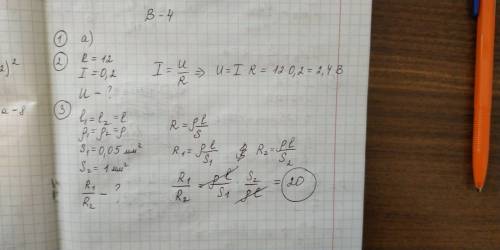 В-4
① а)
② R = 12
I = 0,2
U - ?
I = U/R ⇒ U = I R = 12 0,2 = 2,4 В
③
l₁ = l₂ = l
ρ₁ = ρ₂ = ρ
S₁ = 0,05 мм²
S₂ = 1 мм²
R₁/R₂ - ?
R = ρl/S
R₁ = ρl/S₁ R₂ = ρl/S₂
R₁/R₂ = ρl/S₁ S₂/ρl = 20
)²
a - 8